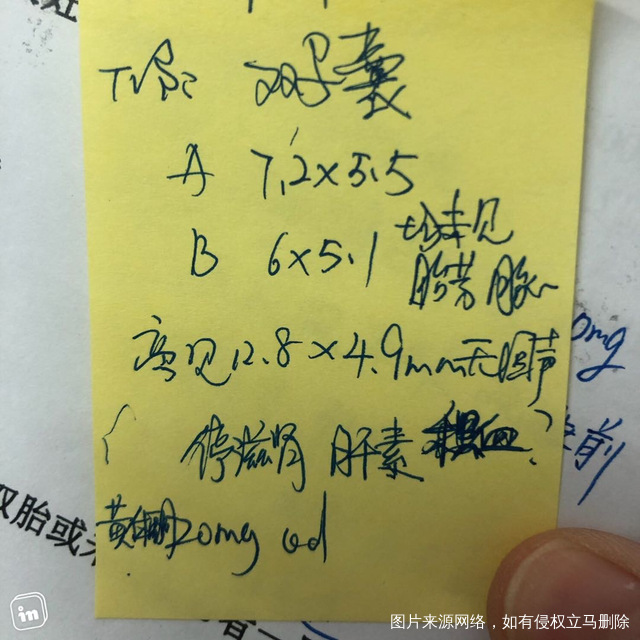 双孕囊
A 7.2×5.5
B 6×5.1 均未见
胎芳 胎心
旁见12.8×4.9mm无回声
停滋肾 肝素 积血?
黄体酮20mg qd
mg
前
取胎或
in
图片来源网络，如有侵权立马删除